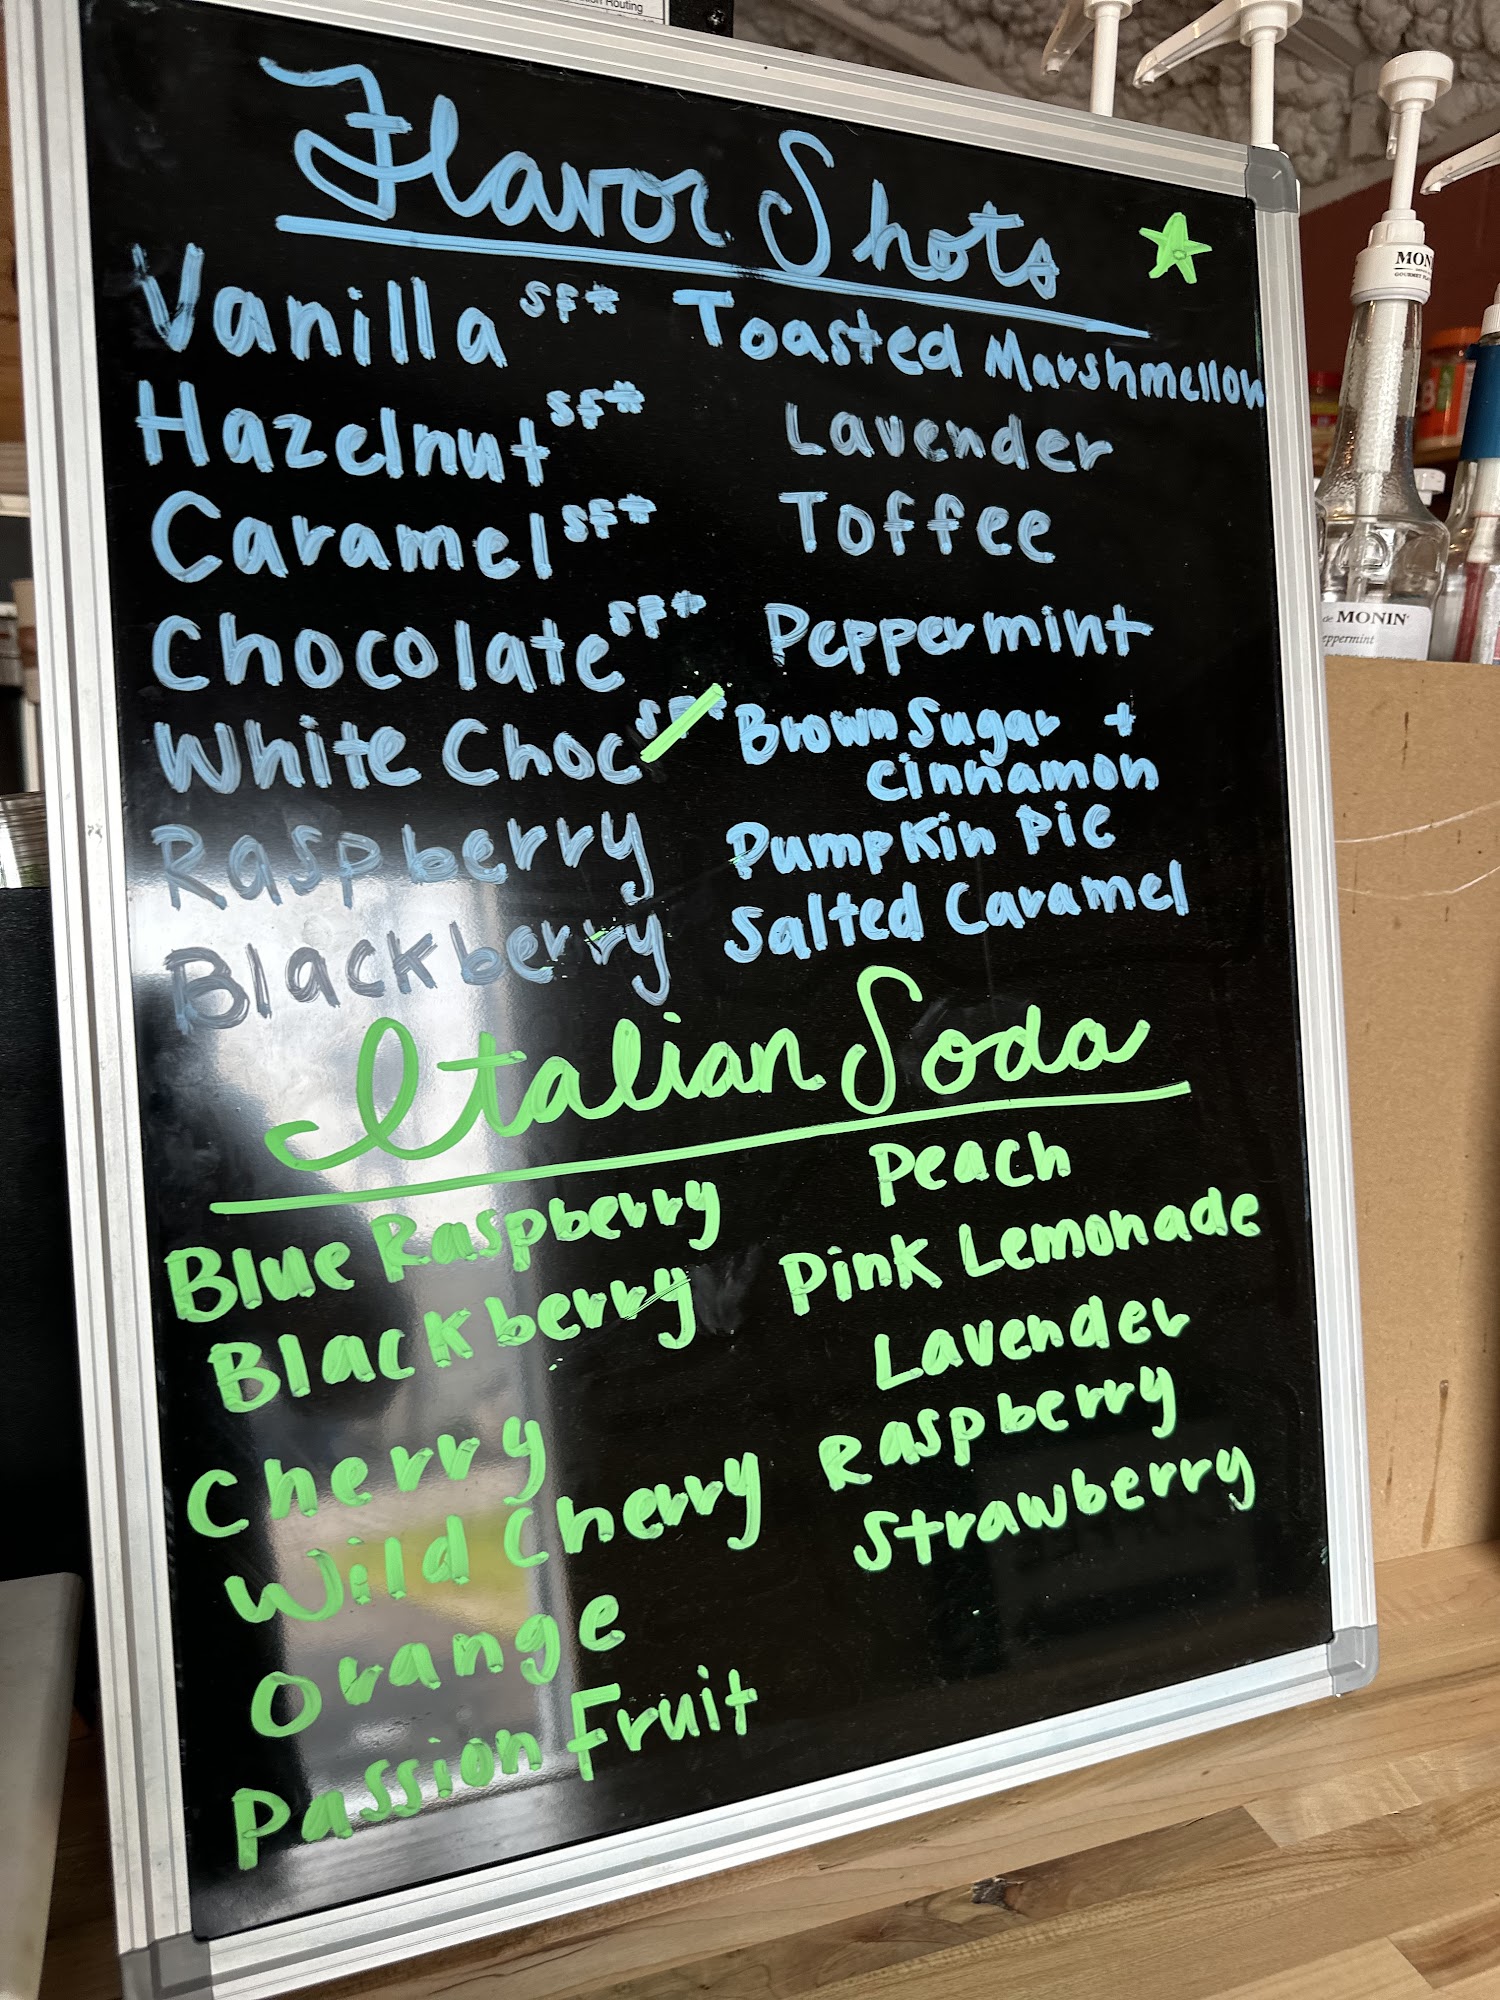 ion Routing
Flavor Shots
Vanilla SF*
Hazelnut SF*
Caramel SF*
Chocolate SF*
White Choc SF*
Raspberry
Blackberry
Toasted Marshmellow
Lavender
Toffee
Peppermint
Brown Sugar +
Cinnamon
Pumpkin Pie
Salted Caramel
Italian Soda
Blue Raspberry
Blackberry
Cherry
Wild Cherry
Orange
Passion Fruit
Peach
Pink Lemonade
Lavender
Raspberry
Strawberry
MON
de MONIN
eppermint